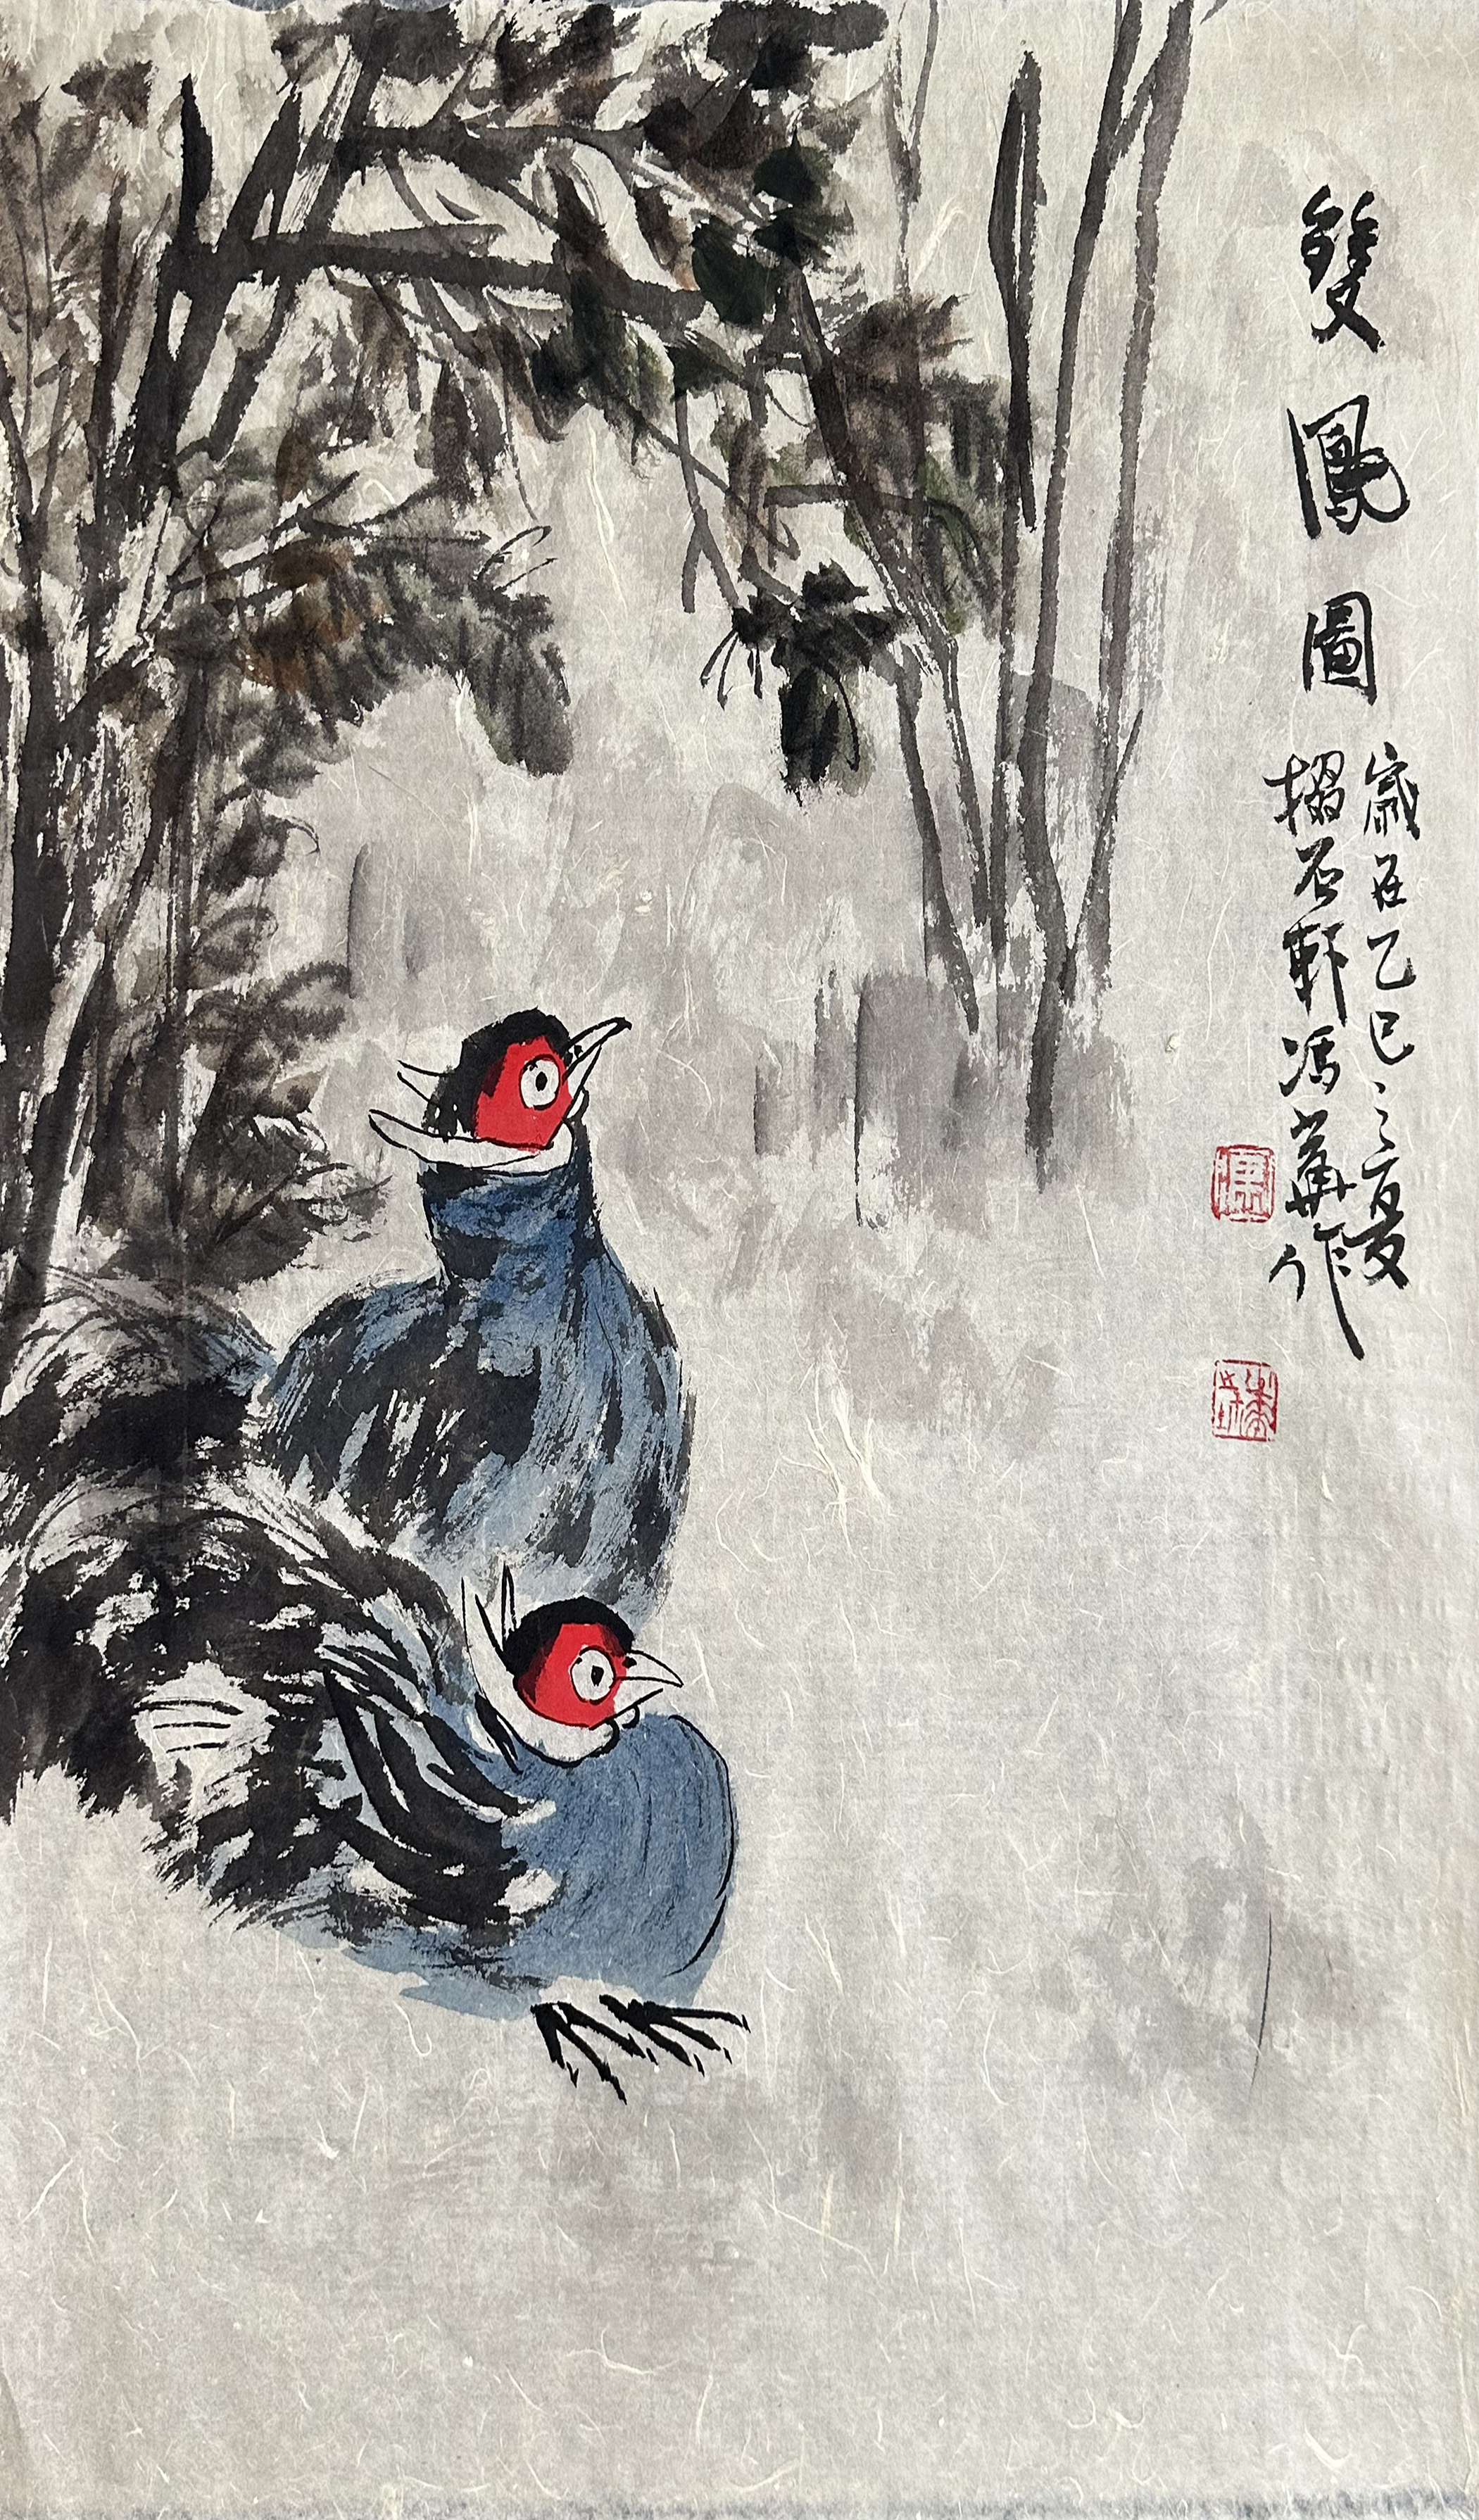 雙鳳圖
歲在乙巳之夏
摺石軒馮華作